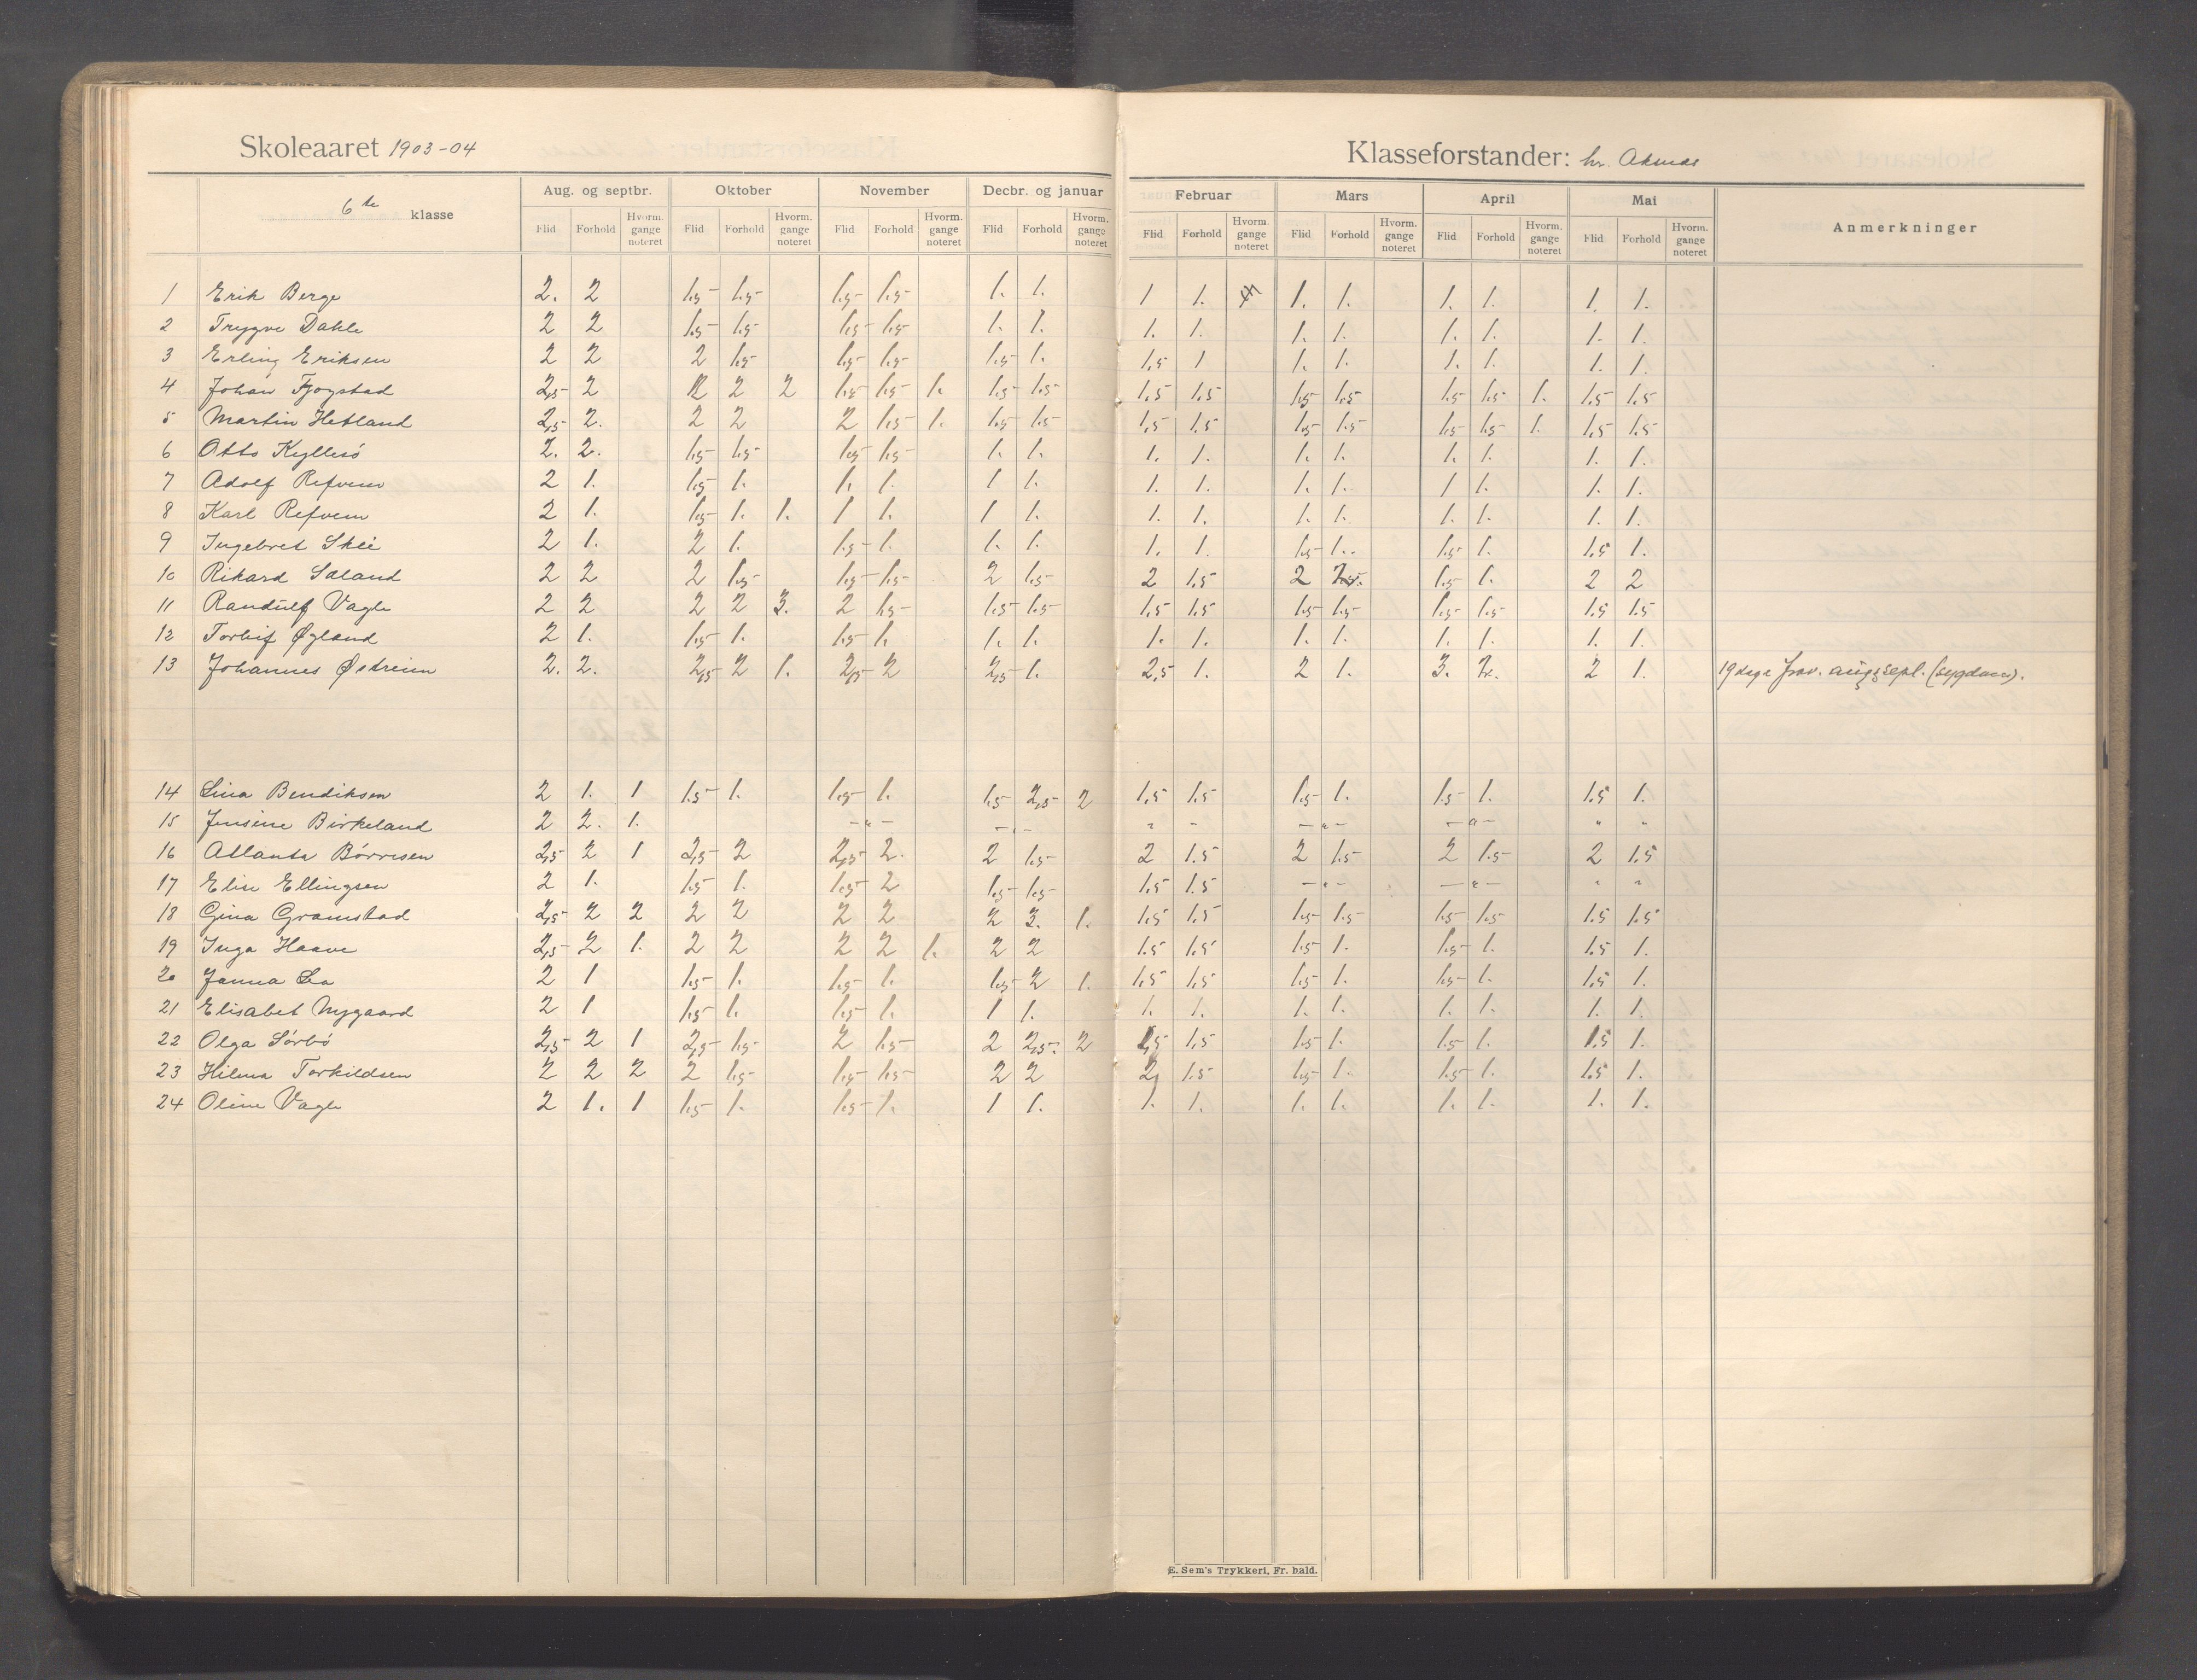 Skoleaaret 1903-04
Klasseforstander: hr.
6te klasse
Aug. og septbr. Oktober November Decbr. og januar Februar Mars April Mai Anmerkninger
Flid Forhold Hvorm. gange noteret Flid Forhold Hvorm. gange noteret Flid Forhold Hvorm. gange noteret Flid Forhold Hvorm. gange noteret Flid Forhold Hvorm. gange noteret Flid Forhold Hvorm. gange noteret Flid Forhold Hvorm. gange noteret Flid Forhold Hvorm. gange noteret
1 Erik Berge 2. 2 1.5 1.5 1.5 1.5 1. 1. 1 1. 1. 1. 1. 1. 1. 1.
2 Trygve Dahle 2 2 1.5 1.5 1.5 1.5 1. 1. 1. 1. 1. 1. 1. 1. 1. 1.
3 Erling Eriksen 2 2 2 1.5 1.5 1.5 1.5 1. 1.5 1 1. 1. 1. 1. 1. 1.
4 Johan Fjogstad 2,5 2 2 2 2 1.5 1.5 1. 1.5 1.5 1.5 1.5 1.5 1.5 1.5 1.5 1. 1.5 1.5
5 Martin Hetland 2,5 2. 2 2 2 1.5 1. 1.5 1.5 1.5 1.5 1.5 1.5 1.5 1.5 1. 1.5 1.5
6 Otto Kyllesö 2. 2. 1.5 1.5 1.5 1.5 1. 1. 1. 1. 1. 1. 1. 1. 1. 1.
7 Adolf Refvem 2 1. 1.5 1. 1. 1. 1 1. 1. 1. 1. 1. 1 1. 1. 1.
8 Karl Refvem 2 1. 1.5 1. 1. 1 1. 1 1. 1. 1. 1. 1. 1. 1. 1. 1.
9 Ingebret Skeie 2 1. 2 1. 1.5 1. 1. 1. 1. 1. 1.5 1. 1.5 1. 1.5 1.
10 Rikard Saland 2 2 2 1.5 1.5 1.5 2 1.5 2 1.5 2 1.5 1. 2 2
11 Randulf Vagle 2 2 2 2 3. 2 1.5 1.5 1.5 1.5 1.5 1.5 1.5 1.5 1.5 1.5 1.5
12 Torleif Øgland 2 1. 1.5 1. 1.5 1. 1. 1. 1. 1. 1. 1. 1. 1. 1. 1.
13 Johannes Østreim 2. 2. 2,5 2 1. 2,5 2 2,5 1. 2,5 1. 2 1. 3. 2. 2 1. 19 dage frav. aug. sept. (sygdom).
14 Lina Bendiksen 2 1. 1 1.5 1. 1.5 1. 1.5 2,5 2 1.5 1.5 1.5 1. 1.5 1. 1.5 1.
15 Jensine Birkeland 2 2. 1. -"- -"- " - -"- -"- " "
16 Atlanta Børresen 2,5 2 1 2,5 2 2,5 2. 2 1.5 2 1.5 2 1.5 2 1.5 2 1.5
17 Elise Ellingsen 2 1. 1.5 1. 1.5 2 1.5 1.5 1.5 1.5 -"- -"- " "
18 Gina Gramstad 2,5 2 2 2 2 2 2 2 3. 1. 1.5 1.5 1.5 1.5 1.5 1.5 1.5 1.5
19 Inga Haave 2,5 2 1. 2 2 2 2 1. 2 2 1.5 1.5 1.5 1. 1.5 1. 1.5 1.
20 Janna Lea 2 1 1.5 1. 1.5 1. 1.5 2 1. 1.5 1.5 1.5 1. 1.5 1. 1.5 1.
21 Elisabet Nygaard 2 1 1.5 1. 1.5 1. 1 1. 1. 1. 1. 1. 1. 1. 1. 1.
22 Olga Sörbö 2,5 2 1 2,5 1.5 2 1.5 2 2,5. 2 1.5 1.5 1.5 1. 1.5 1. 1.5 1.
23 Hilma Torkildsen 2 2 2 2 1.5 1.5 1.5 2 2 2 1.5 1.5 1. 1.5 1. 1.5 1.
24 Oline Vagle 2 1. 1 1.5 1. 1.5 1. 1 1. 1. 1. 1. 1. 1. 1. 1. 1.
E. Sem's Trykkeri, Fr. hald.